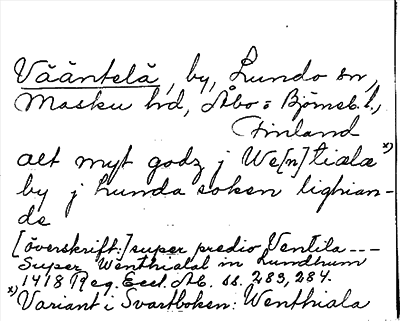 Vääntelä, by, Lundo sn,
Masku hd, Åbo o Björneb. l.,
Finland
alt myt godz j We[n]tiala x)
by j lunda soken lighian-
de
[överskrift:] super predio Ventila ---
Super Wenthialal in Lundhum
1418 Reg. Eccl. Ab. ss. 283, 284.
x) Variant i Svartboken: Wenthiala